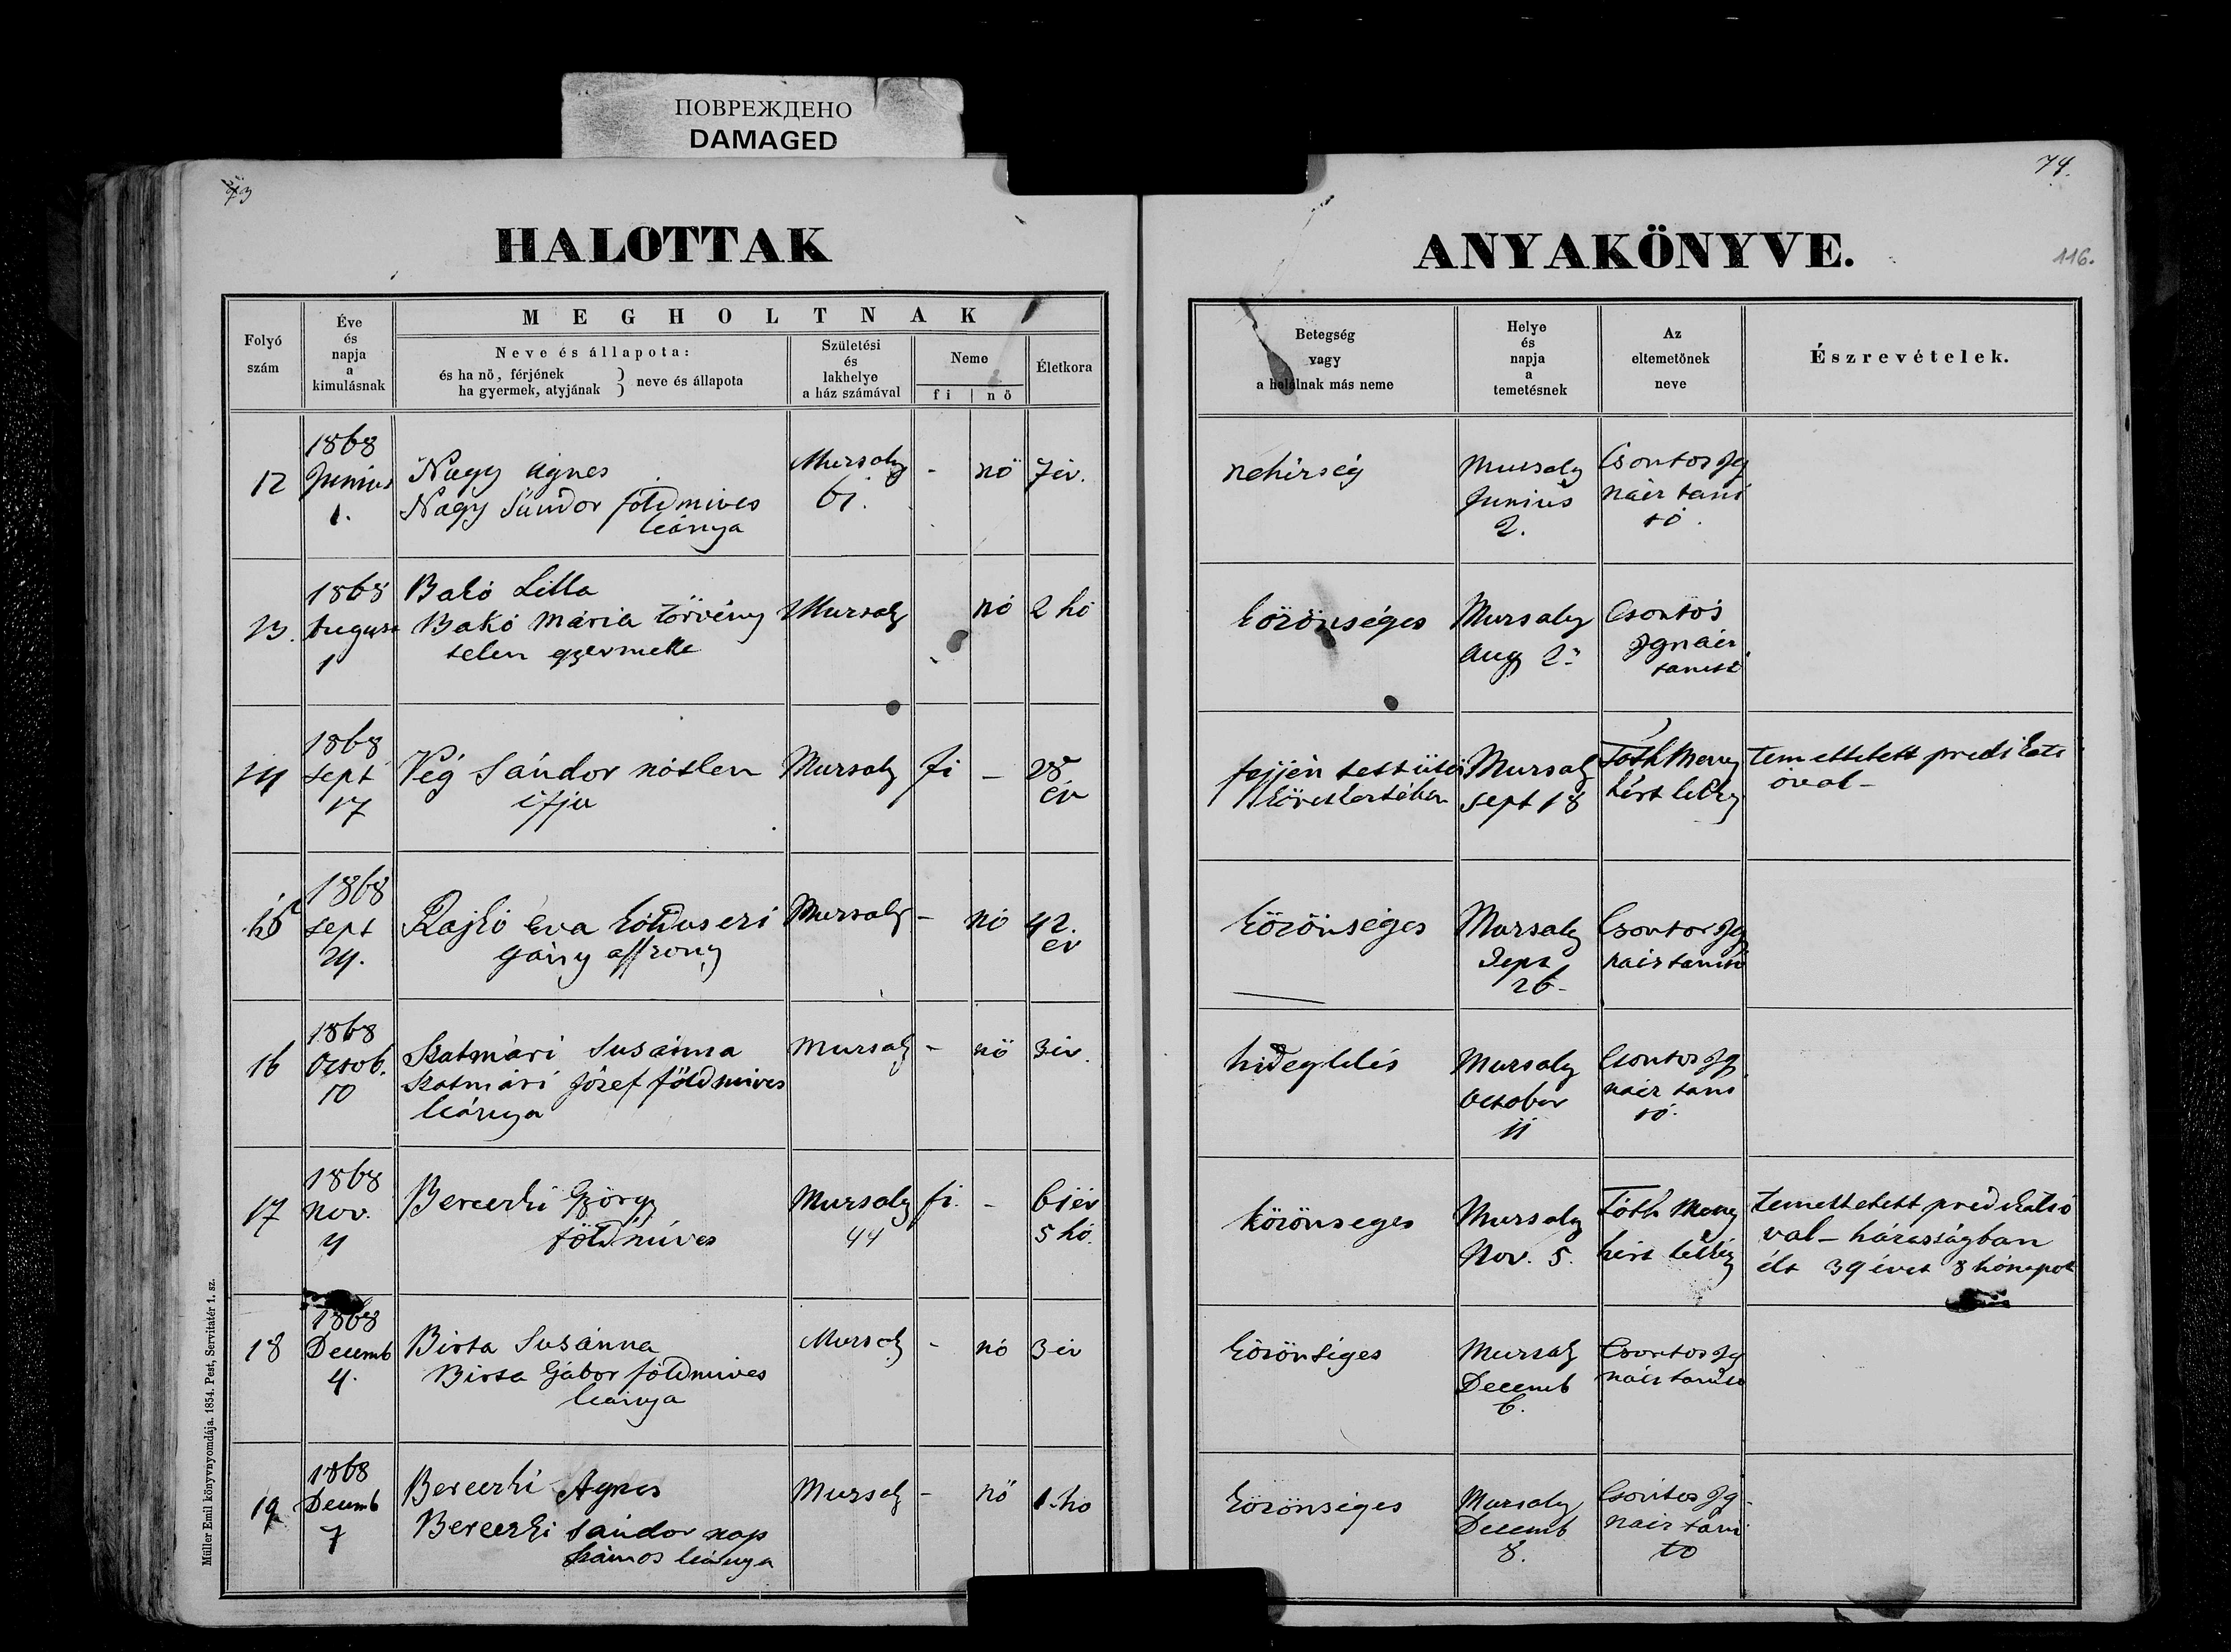 ПОВРЕЖДЕНО
DAMAGED
73
74.
116.
HALOTTAK
ANYAKÖNYVE.
Folyó
szám
Éve
és
napja
a
kimulásnak
MEGHOLTNAK
Neve és állapota:
és ha nő, férjének
ha gyermek, atyjának } neve és állapota
Születési
és
lakhelye
a ház számával
Neme
fi | nő
Életkora
Betegség
vagy
a halálnak más neme
Helye
és
napja
a
temetésnek
Az
eltemetőnek
neve
Észrevételek.
12
1868
Junius
1.
Nagy Ágnes
Nagy Sándor földmives
leánya
Mursaly
61.
-
nő
7 év.
nehérség
Mursaly
Junius
2.
Csontos Ig
nácz tani
tó.
13.
1868
August
1
Bakó Lilla
Bakó Mária törvény
telen gyermeke
Mursaly
nő
2 hó
közönséges
Mursaly
Aug 2.
Csontos
Ignácz
tanitó
14
1868
Sept
17
Vég Sándor nőtlen
ifju
Mursaly
fi
-
28
év
fejjén
Mursaly
Sept 18
Tóth Meny
hért lelkész
temettetett predikáti
óval -
15
1868
Sept
24.
Rajkó Éva koldus
Mursaly
-
nő
42.
év
közönséges
Mursaly
Sept
26.
Csontos Ig
nácz tanitó
16
1868
Octob.
10
Szatmári Susánna
Szatmári József földmives
leánya
Mursaly
-
nő
3 év.
hideglelés
Mursaly
October
11
Csontos Ig
nácz tani
tó.
17
1868
Nov.
4
Bereczki György
földmíves
Mursaly
44
fi.
-
61 év
5 hó.
közönseges
Mursaly
Nov. 5.
Tóth Meny
hért lelkész
temettetett predikátió
val - házasságban
élt 39 évet 8 hónapot
18
1868
Decemb
4.
Birta Susánna
Birta Gábor földmives
leánya
Mursaly
-
nő
3 év
közönséges
Mursaly
Decemb
6.
Csontos Ig
nácz tanitó
19
1868
Decemb
7
Bereczki Ágnes
Bereczki Sándor nap
számos leánya
Mursaly
-
nő
1. hó
közönséges
Mursaly
Decemb
8.
Csontos Ig
nácz tani
tó
Müller Emil könyvnyomdája. 1854. Pest, Servitatér 1. sz.